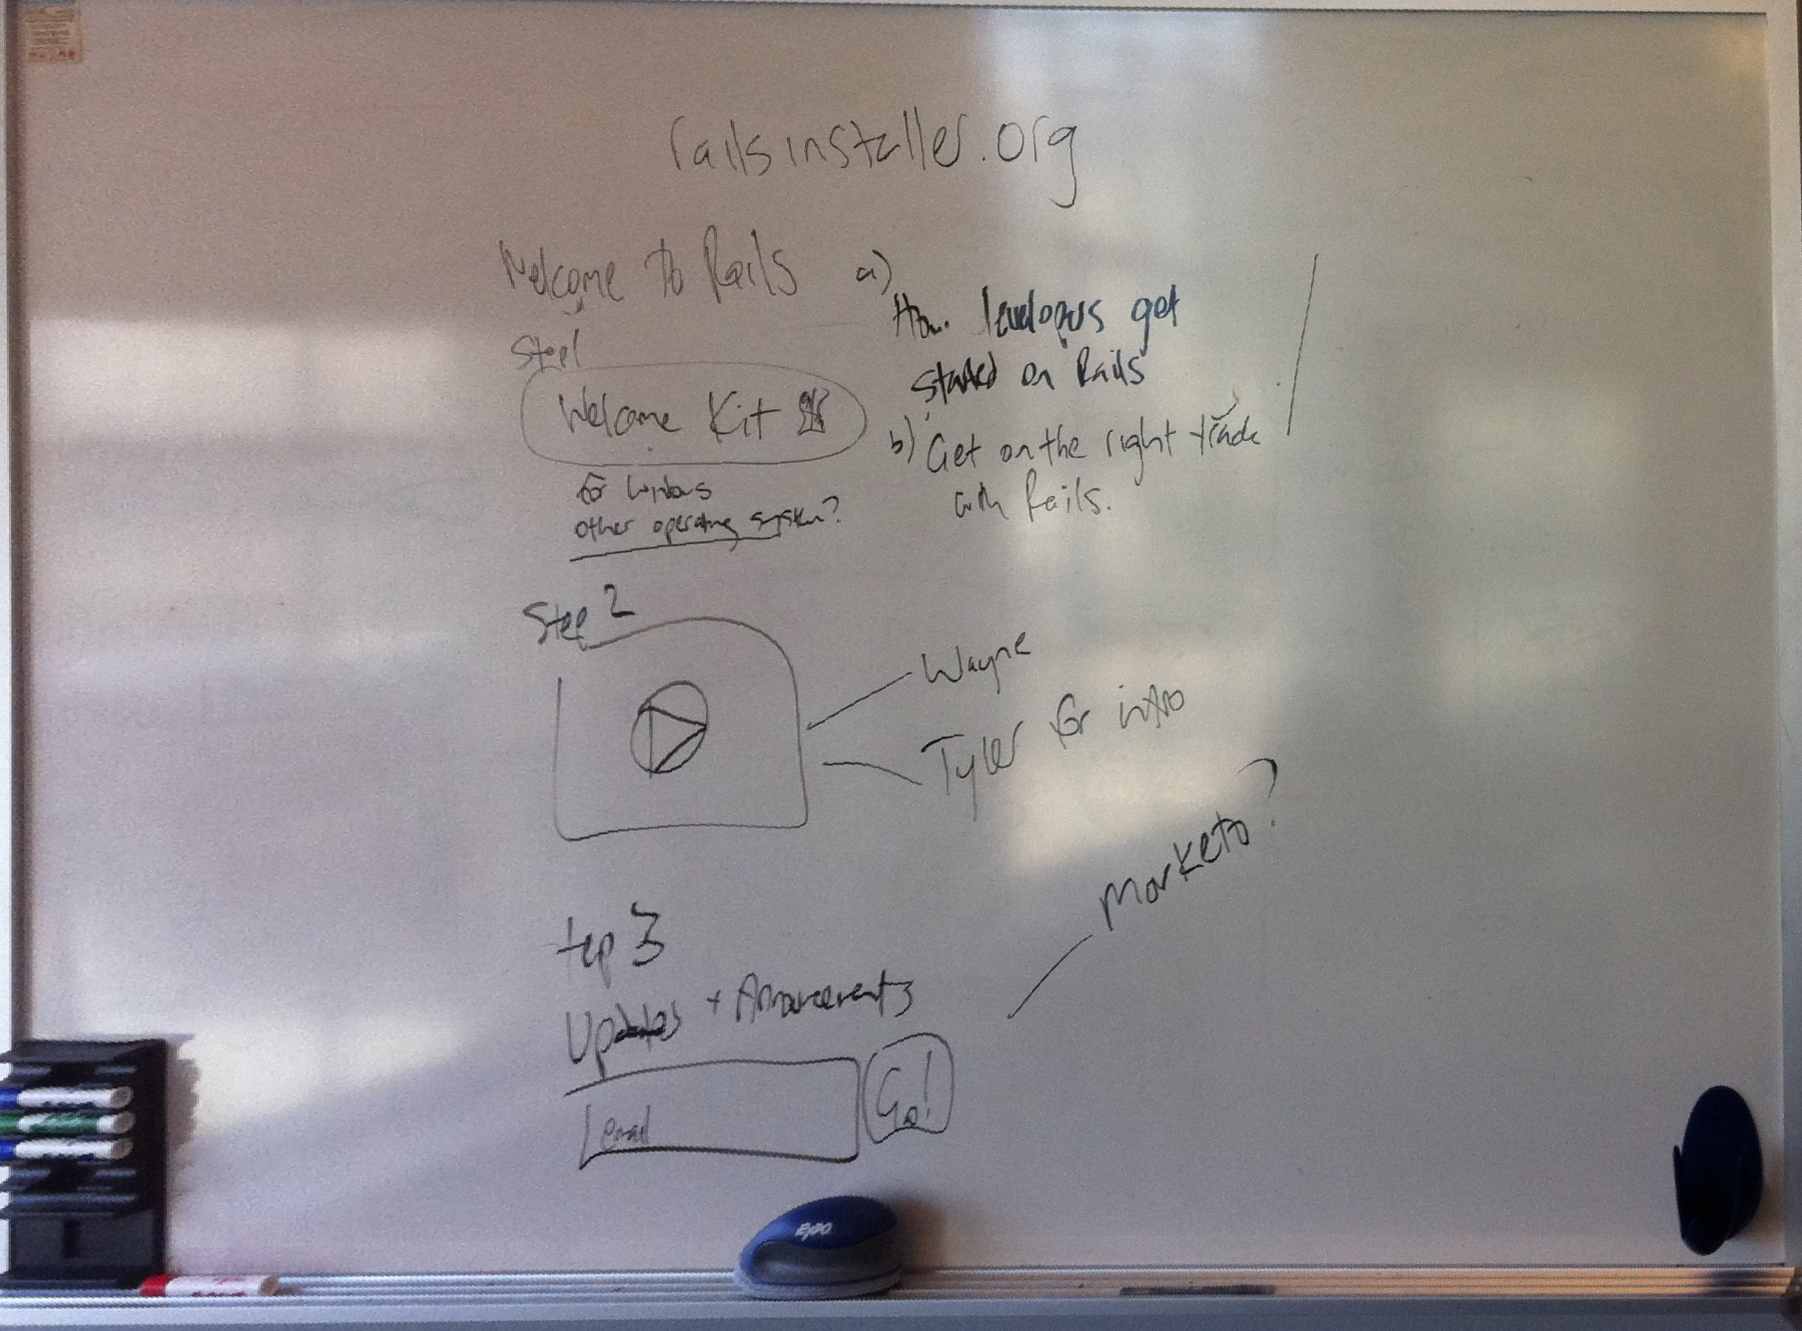 railsinstaller.org
Welcome to Rails
a)
How developers get
started on Rails
b) Get on the right track
with Rails.
Step 1
Welcome Kit
for Windows
other operating system?
Step 2
Wayne
Tyler for intro
tep 3
Marketo?
Updates + Announcements
email
Go!
EXPO